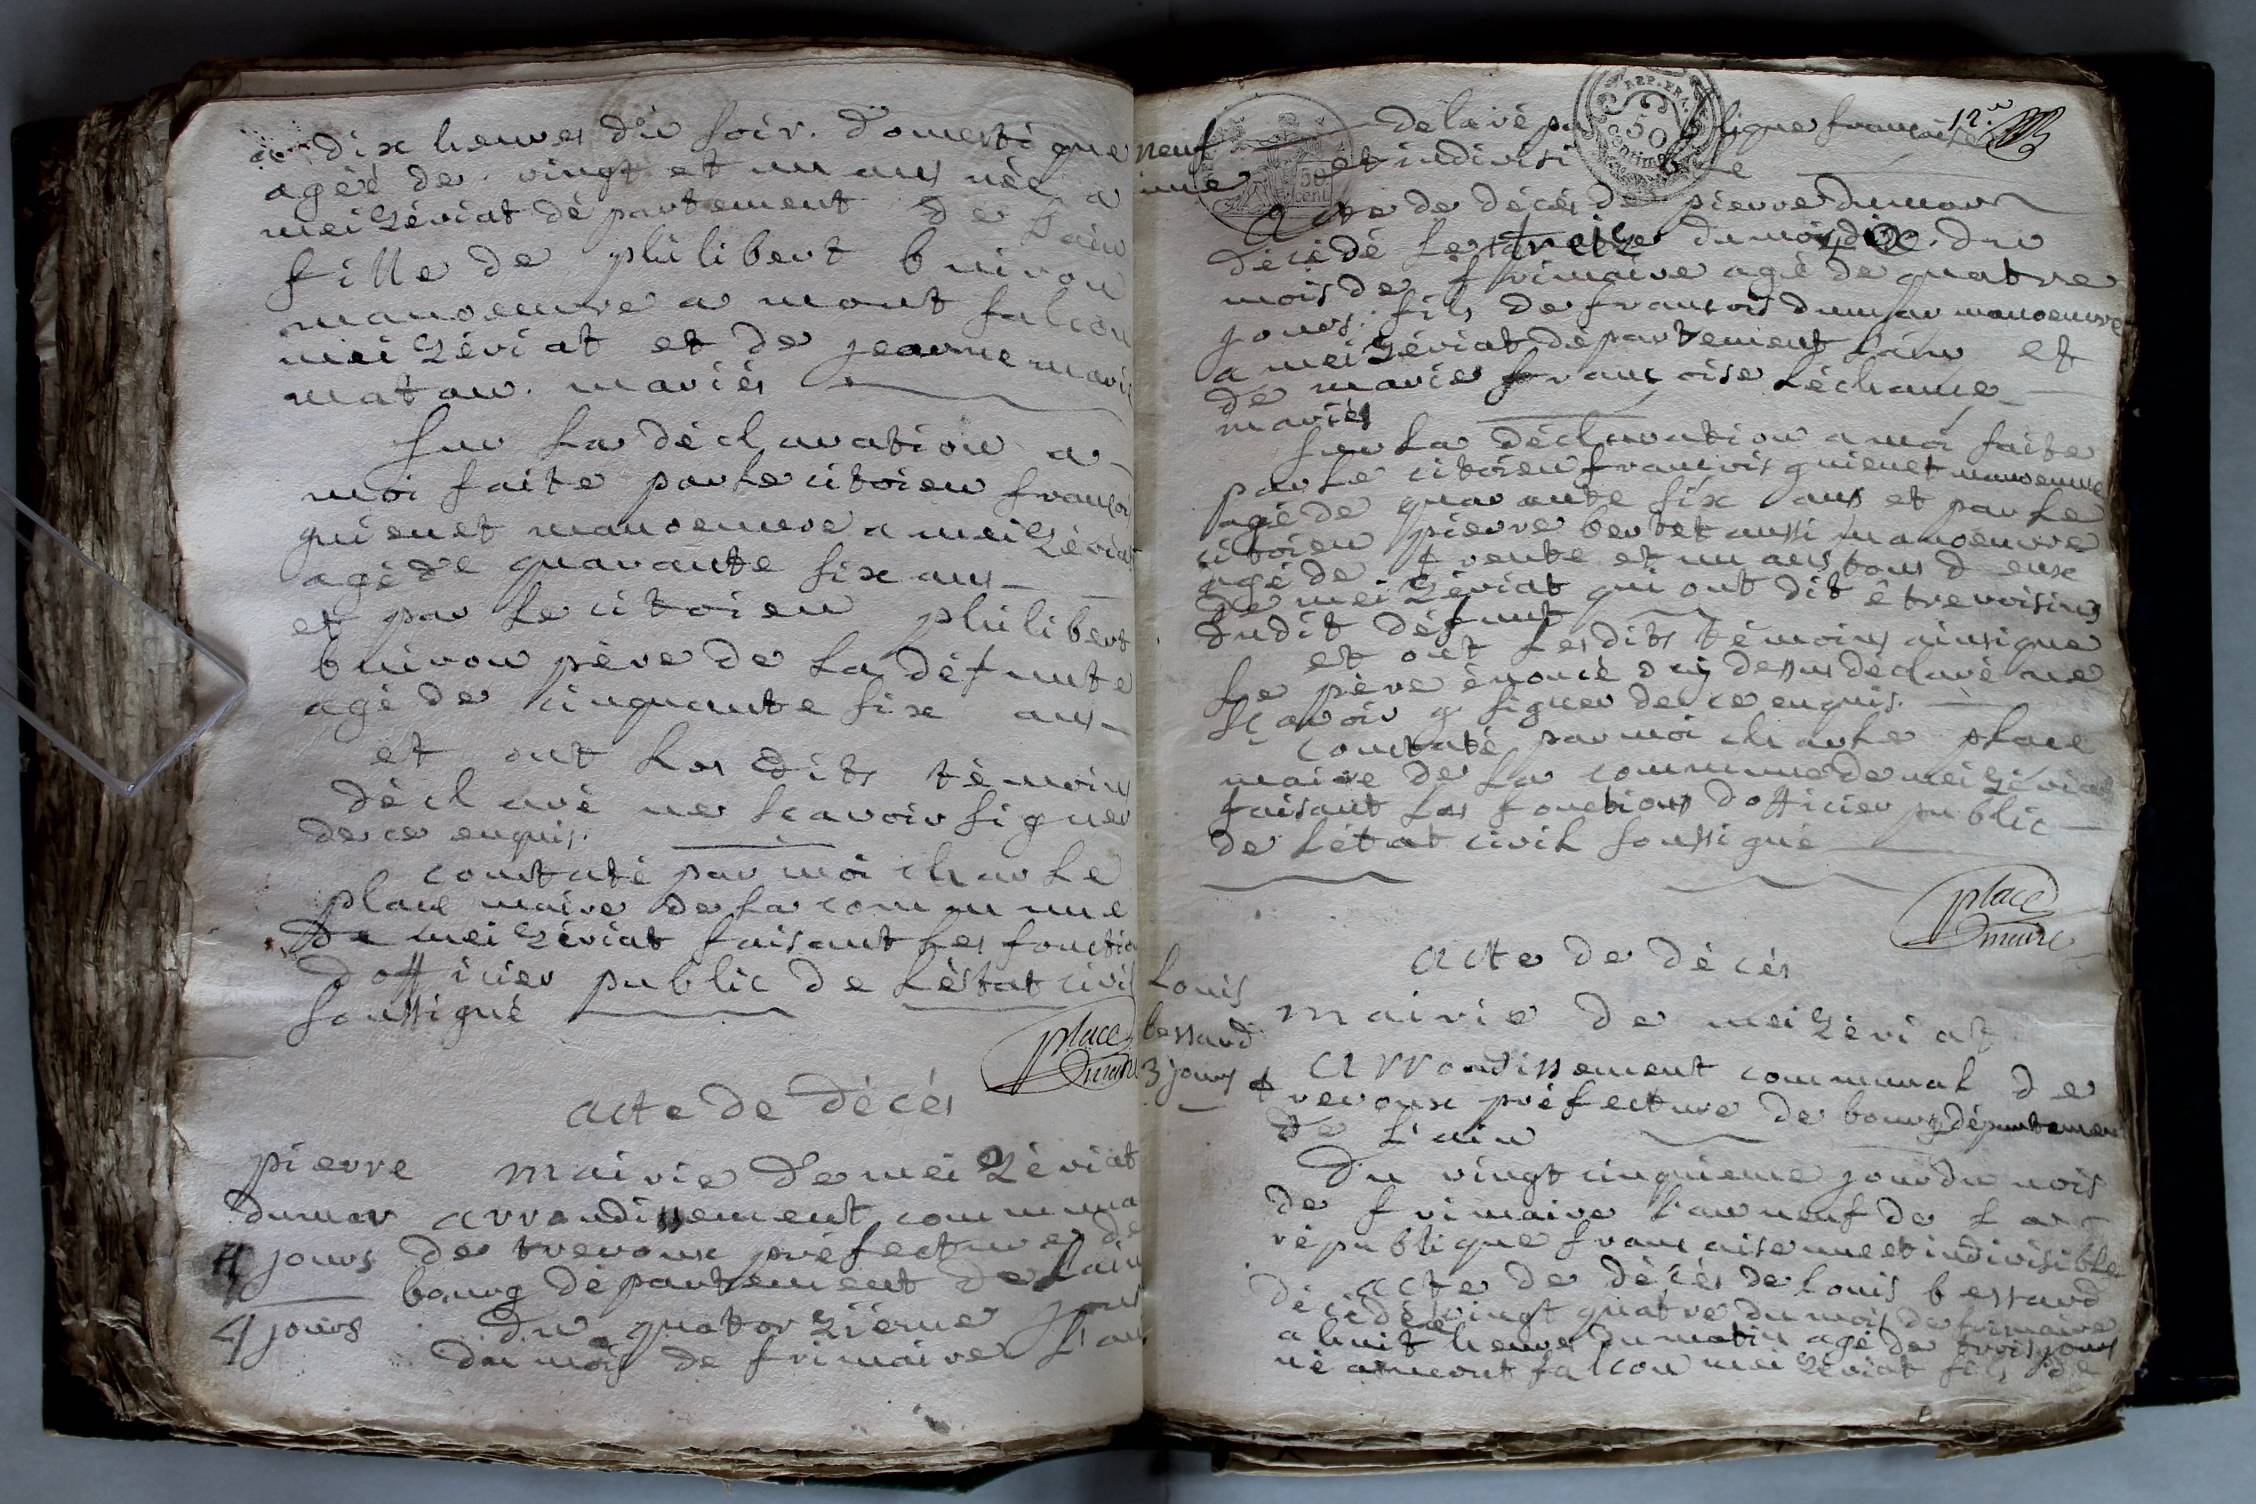 a dix heures du soir. domestique
agée de vingt et un ans née a
meizériat département de Lain
fille de philibert buiron
manoeuvre a mont falcon
meizériat et de jeanne marie
maton. mariés
Sur La déclaration a
moi faite par Le citoien françoi
guienet manoeuvre a meizériat
agé de quarante six ans
et par Le citoien philibert
buiron père de La défunte
agé de cinquante six ans
et ont Les dits témoins
déclaré ne scavoir signer
de ce enquis.
constaté par moi charle
place maire de La commune
de meizériat faisant Les fonction
dofficier public de Léstat civil
soussigné
place
maire
acte de décés
pierre
dumar
4 jours
4 jours
mairie de meizériat
arrondissement communa
de trevoux préfecture de
bourg département de Lain
du quatorziéme jour
du mois de frimaire Lan
neuf de la ré publique française 12.e
une et indivisi ble
REP. FRA.
50
centimes
50
cent
Acte de décés de pierre dumar
décédé Le treize du mois du
mois de frimaire agé de quatre
jours. fils de francois dumar manoeuvre
a meizériat département Lain et
de marie françoise Léchame
mariés
Sur La déclaration a moi faite
par Le citoien francois guienet manoeuvre
agé de quarante six ans et par Le
citoien pierre bertet aussi manoeuvre
agé de trente et un ans tous deux
de meizériat qui ont dit être voisins
dudit défunt
et ont Lesdits témoins ainsi que
Le père énoncé cy dessus déclaré ne
sçavoir signer de ce enquis.
constaté par moi charle place
maire de La commune de meizériat
faisant Les fonctions dofficier public
de Létat civil soussigné
place
maire
acte de décés
Louis
bessard
3 jours
mairie de meizériat
arrondissement communal de
trevoux préfecture de bourg département
de L'ain
Du vingt cinquieme jour du mois
de frimaire L'an neuf de La
république francaise une et indivisible
acte de décés de louis bessard
décédé Le vingt quatre du mois de frimaire
a huit heures du matin agé de trois jours
né a mont falcon meizériat fils de